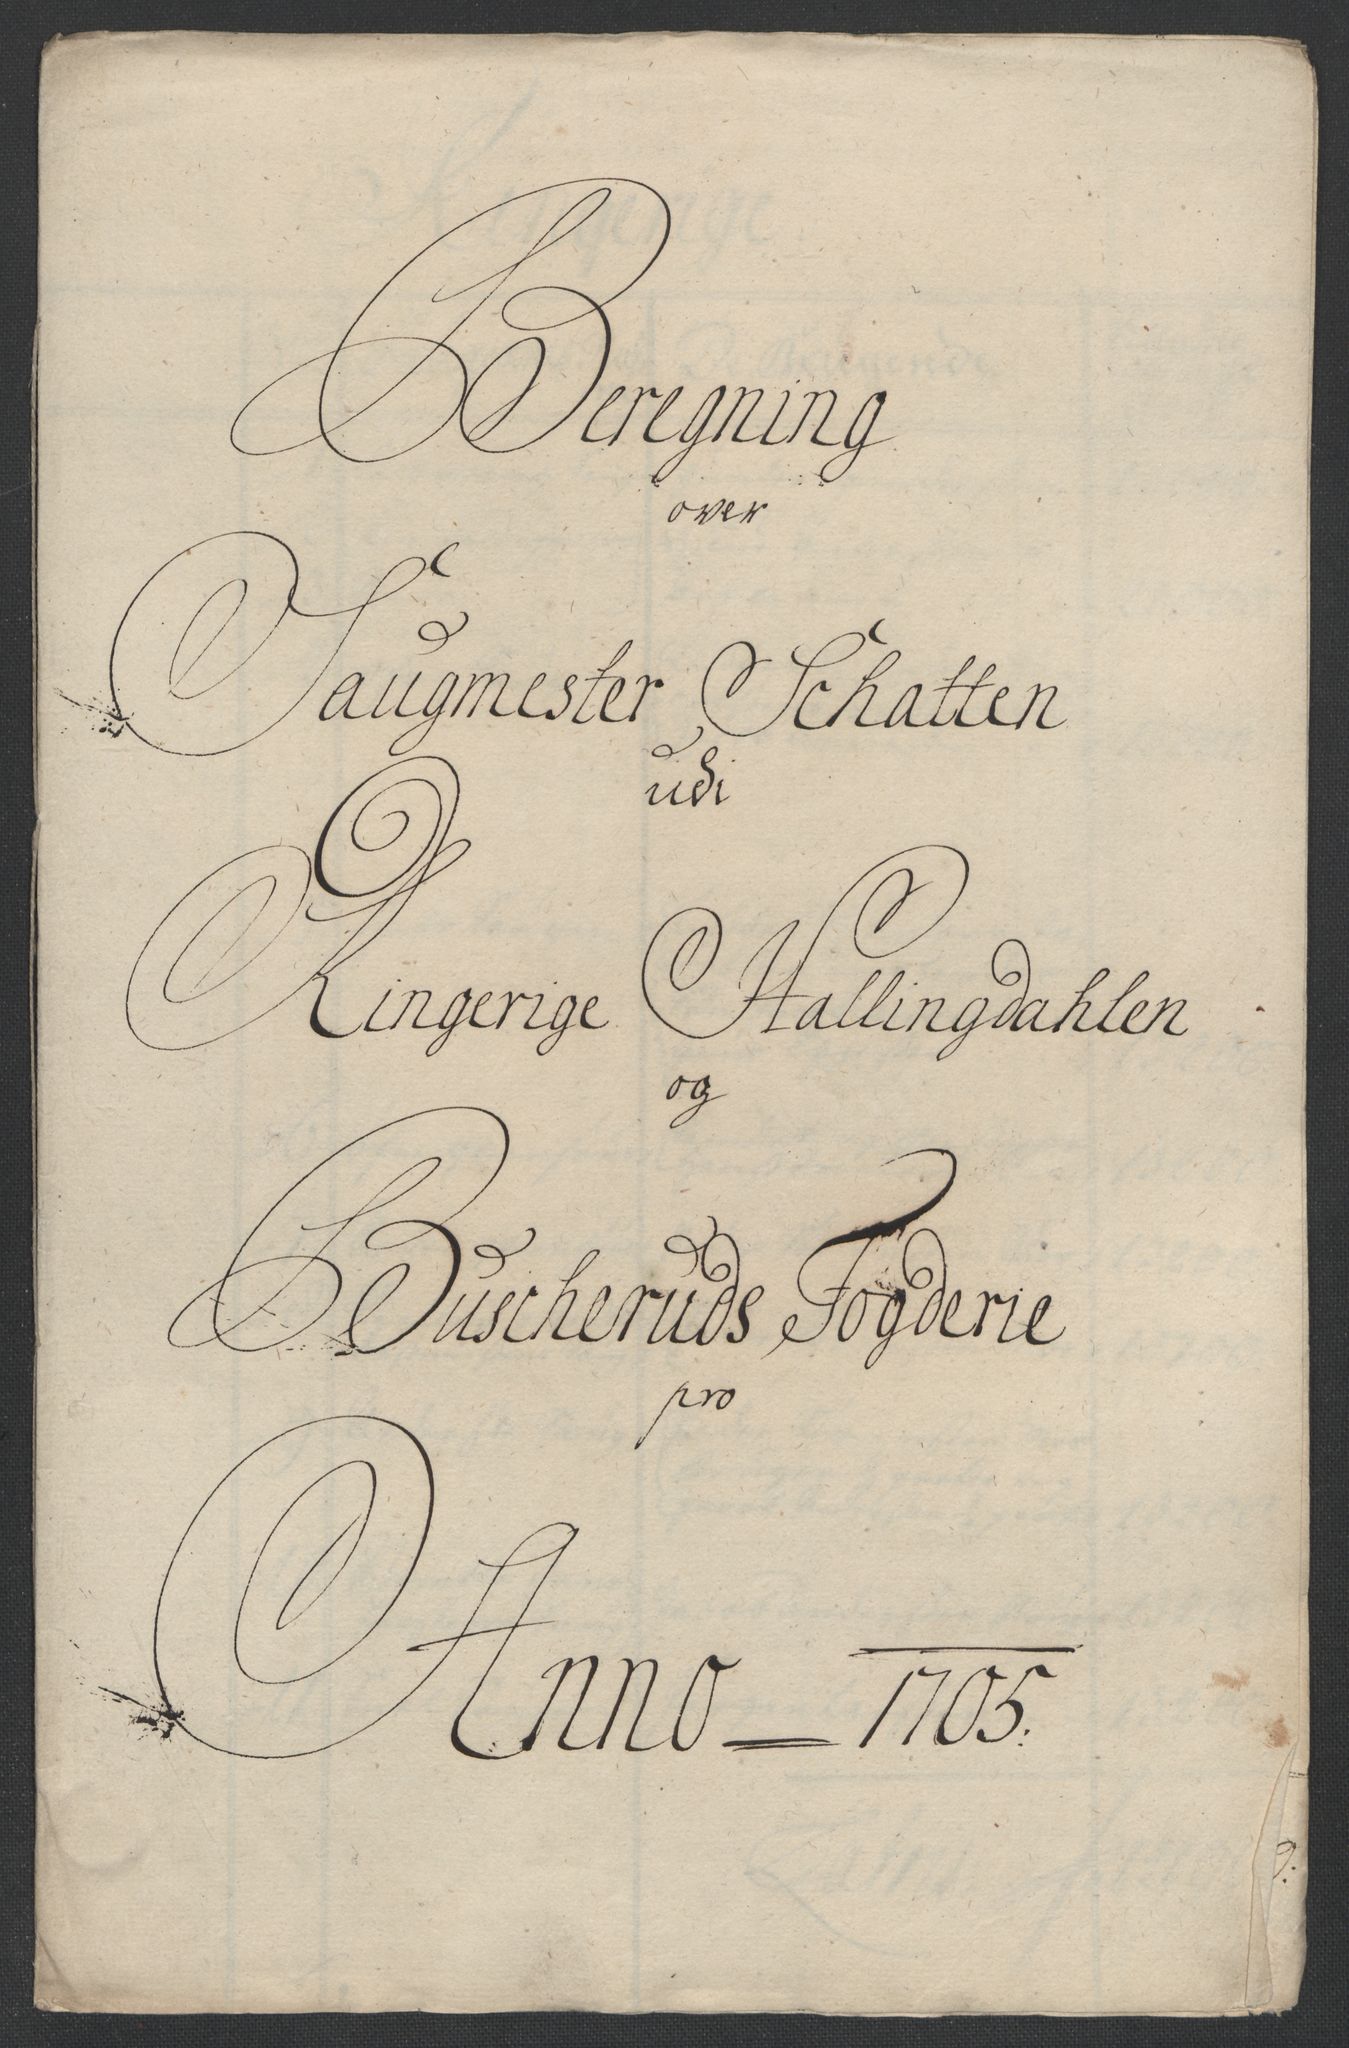 Beregning
over
Saugmester Schatten
udi
Ringerige Hallingdahlen
og
Buscheruds Fogderie
pro
Anno 1705.